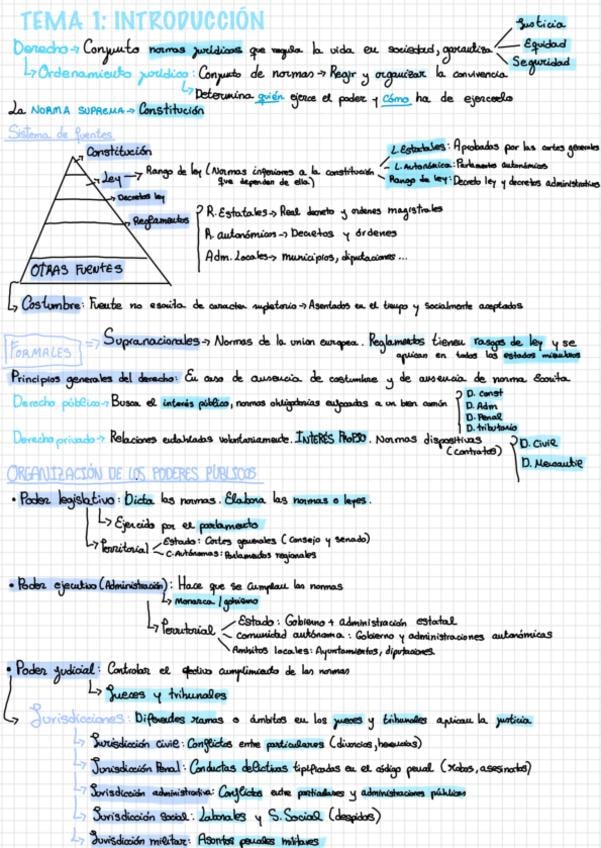 TEMA 1: INTRODUCCIÓN
Derecho → Conjunto normas jurídicas que regula la vida en sociedad, garantiza
Justicia
Equidad
Seguridad
Ordenamiento jurídico: Conjunto de normas → Regir y organizar la convivencia
Determina quién ejerce el poder y cómo ha de ejercerlo
La NORMA SUPREMA → Constitución
Sistema de fuentes
Constitución
Ley → Rango de ley (Normas inferiores a la constitución
que dependen de ella)
L. Estatales: Aprobadas por las cortes generales
L. Autonómica: Parlamentos autonómicos
Rango de ley: Decreto ley y decretos administrativos
Decretos ley
Reglamentos
R. Estatales → Real decreto y ordenes magistrales
R. autonómicos → Decretos y órdenes
Adm. Locales → municipios, diputaciones ...
OTRAS FUENTES
Costumbre: Fuente no escrita de caracter supletorio → Asentados en el tiempo y socialmente aceptados
FORMALES
⇒ Supranacionales → Normas de la union europea. Reglamentos tienen rasgos de ley y se
aplican en todos los estados miembros
Principios generales del derecho: En caso de ausencia de costumbre y de ausencia de norma Escrita
Derecho público → Busca el interés público, normas obligatorias enfocadas a un bien común
D. Const
D. Adm
D. Penal
D. tributario
Derecho privado → Relaciones entabladas voluntariamente. INTERÉS PROPIO. Normas dispositivas
(contratos)
D. Civil
D. Mercantil
ORGANIZACIÓN DE LOS PODERES PÚBLICOS
• Poder legislativo: Dicta las normas. Elabora las normas o leyes.
Ejercido por el parlamento
Territorial
Estado: Cortes generales (Consejo y senado)
C. Autónomas: Parlamentos regionales
• Poder ejecutivo (Administración): Hace que se cumplan las normas
Monarca / gobierno
Territorial
Estado: Gobierno + administración estatal
Comunidad autónoma: Gobierno y administraciones autonómicas
Ámbitos locales: Ayuntamientos, diputaciones
• Poder judicial: Controlar el efectivo cumplimiento de las normas
Jueces y tribunales
Jurisdicciones: Diferentes ramas o ámbitos en los jueces y tribunales aplican la justicia
Jurisdicción civil: Conflictos entre particulares (divorcios, herencias)
Jurisdicción Penal: Conductas delictivas tipificadas en el código penal (robos, asesinatos)
Jurisdicción administrativa: Conflictos entre particulares y administraciones públicas
Jurisdicción Social: Laborales y S. Social (despidos)
Jurisdicción militar: Asuntos penales militares